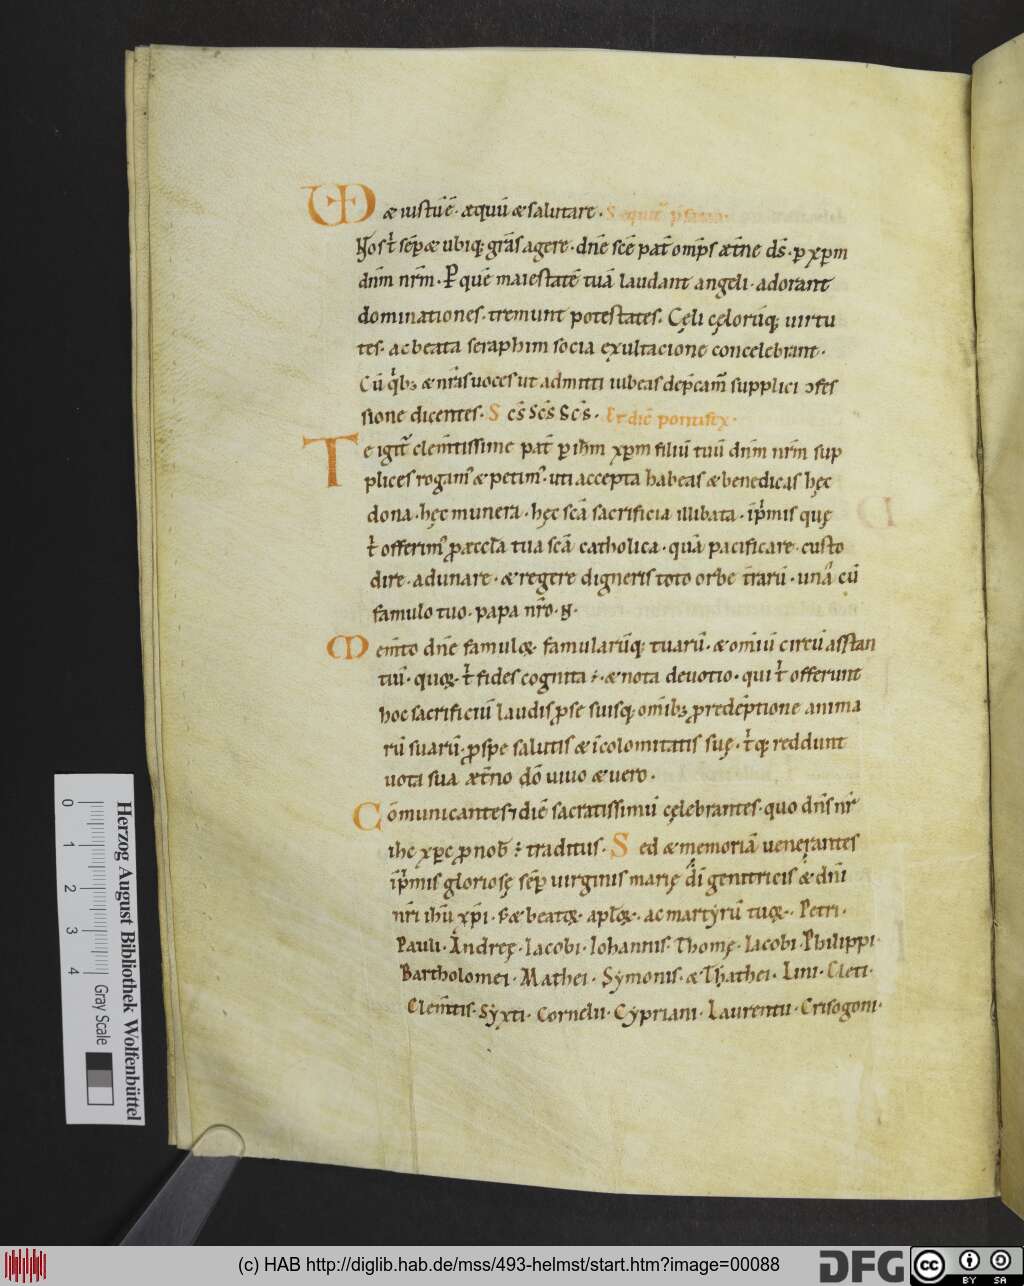 VD æ iustū ē· æquū æ salutare·
Nos t̄ sēp æ ubiq; grās agere· dn̄e sc̄e pat̄ omp̄s æt̄ne ds̄· p xp̄m
dn̄m nr̄m· P̲ quē maiestatē tuā laudant angeli· adorant
dominationes· tremunt potestates. Cęli cęlorūq; uirtu
tes· ac beata seraphim socia exultacione concelebrant·
Cū q̇b; æ nr̄as uoces ut admitti iubeas dep̄cam̄ supplici ɔfes
sione dicentes· S cs̄ Scs̄ Scs̄· Et dic̄ pontifex·
Te igit̄ clem̄tissime pat̄ p ih̄m xp̄m filiū tuū dn̄m nr̄m sup
plices rogam᾽ æ petim᾽· uti accepta habeas æ benedicas hęc
dona· hęc munera· hęc sc̄a sacrificia illibata· īp̄mis quę
t̄ offerim᾽ p æccl̄a tua sc̄ā catholica· quā pacificare· custo
dire· adunare· æ regere digneris toto orbe t̄rarū· unā cū
famulo tuo· papa nr̄o· N·
Mem̄to dn̄e famuloꝝ famularūq; tuarū· æ om̄iū circū asstan
tiū· quoꝝ t̄ fides cognita ÷ æ nota deuotio· qui t̄ offerunt
hoc sacrificiū laudis p se suisq; om̄ib; p redēptione anima
rū suarū· p spe salutis æ īcolomitatis suę· t̄q; reddunt
uota sua æt̄no dō uiuo æ uero·
Cōmunicantes ⁊ diē sacratissimū cęlebrantes· quo dn̄s nr̄
ihc xp̄c p nob̄ : traditus· S ed æ memoriā uenerantes
īp̄mis gloriosę sēp uirginis marię dī genitricis æ dn̄i
nr̄i ihū xp̄i· S æ beatoꝝ· apl̄oꝝ· ac martyrū tuoꝝ· Petri·
Pauli· Andreę· Iacobi· Iohannis· Thomę· Iacobi· Philippi·
Bartholomei· Mathei· Symonis· æ Thathei· Lini· Cleti·
Clem̄tis· Syxti· Cornelii· Cypriani· Laurentii· Crisogoni·
Herzog August Bibliothek Wolfenbüttel
0 1 2 3 4 Gray Scale
(c) HAB http://diglib.hab.de/mss/493-helmst/start.htm?image=00088
DFG
cc BY SA